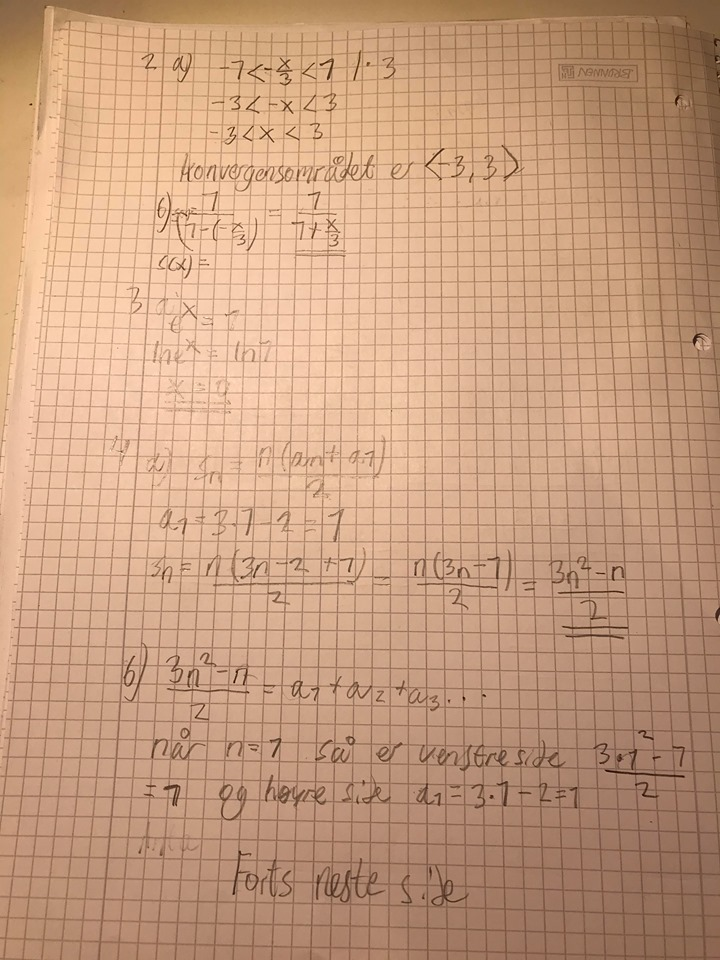 2 a) -1 < -x/3 < 1 | · 3
-3 < -x < 3
-3 < x < 3
Konvergensområdet er ⟨-3, 3⟩
b) s(x) = 1/(1-(-x/3)) = 1/(1+x/3)
s(x) =
3 a) e^x = 1
ln e^x = ln 1
x = 0
4 a) Sn = n(an + a1)/2
a1 = 3·1 - 2 = 1
Sn = n(3n - 2 + 1)/2 = n(3n - 1)/2 = (3n² - n)/2
b) (3n² - n)/2 = a1 + a2 + a3 ...
når n = 1 så er venstre side (3·1² - 1)/2
= 1 og høyre side a1 = 3·1 - 2 = 1
Forts neste side
BRUNNEN